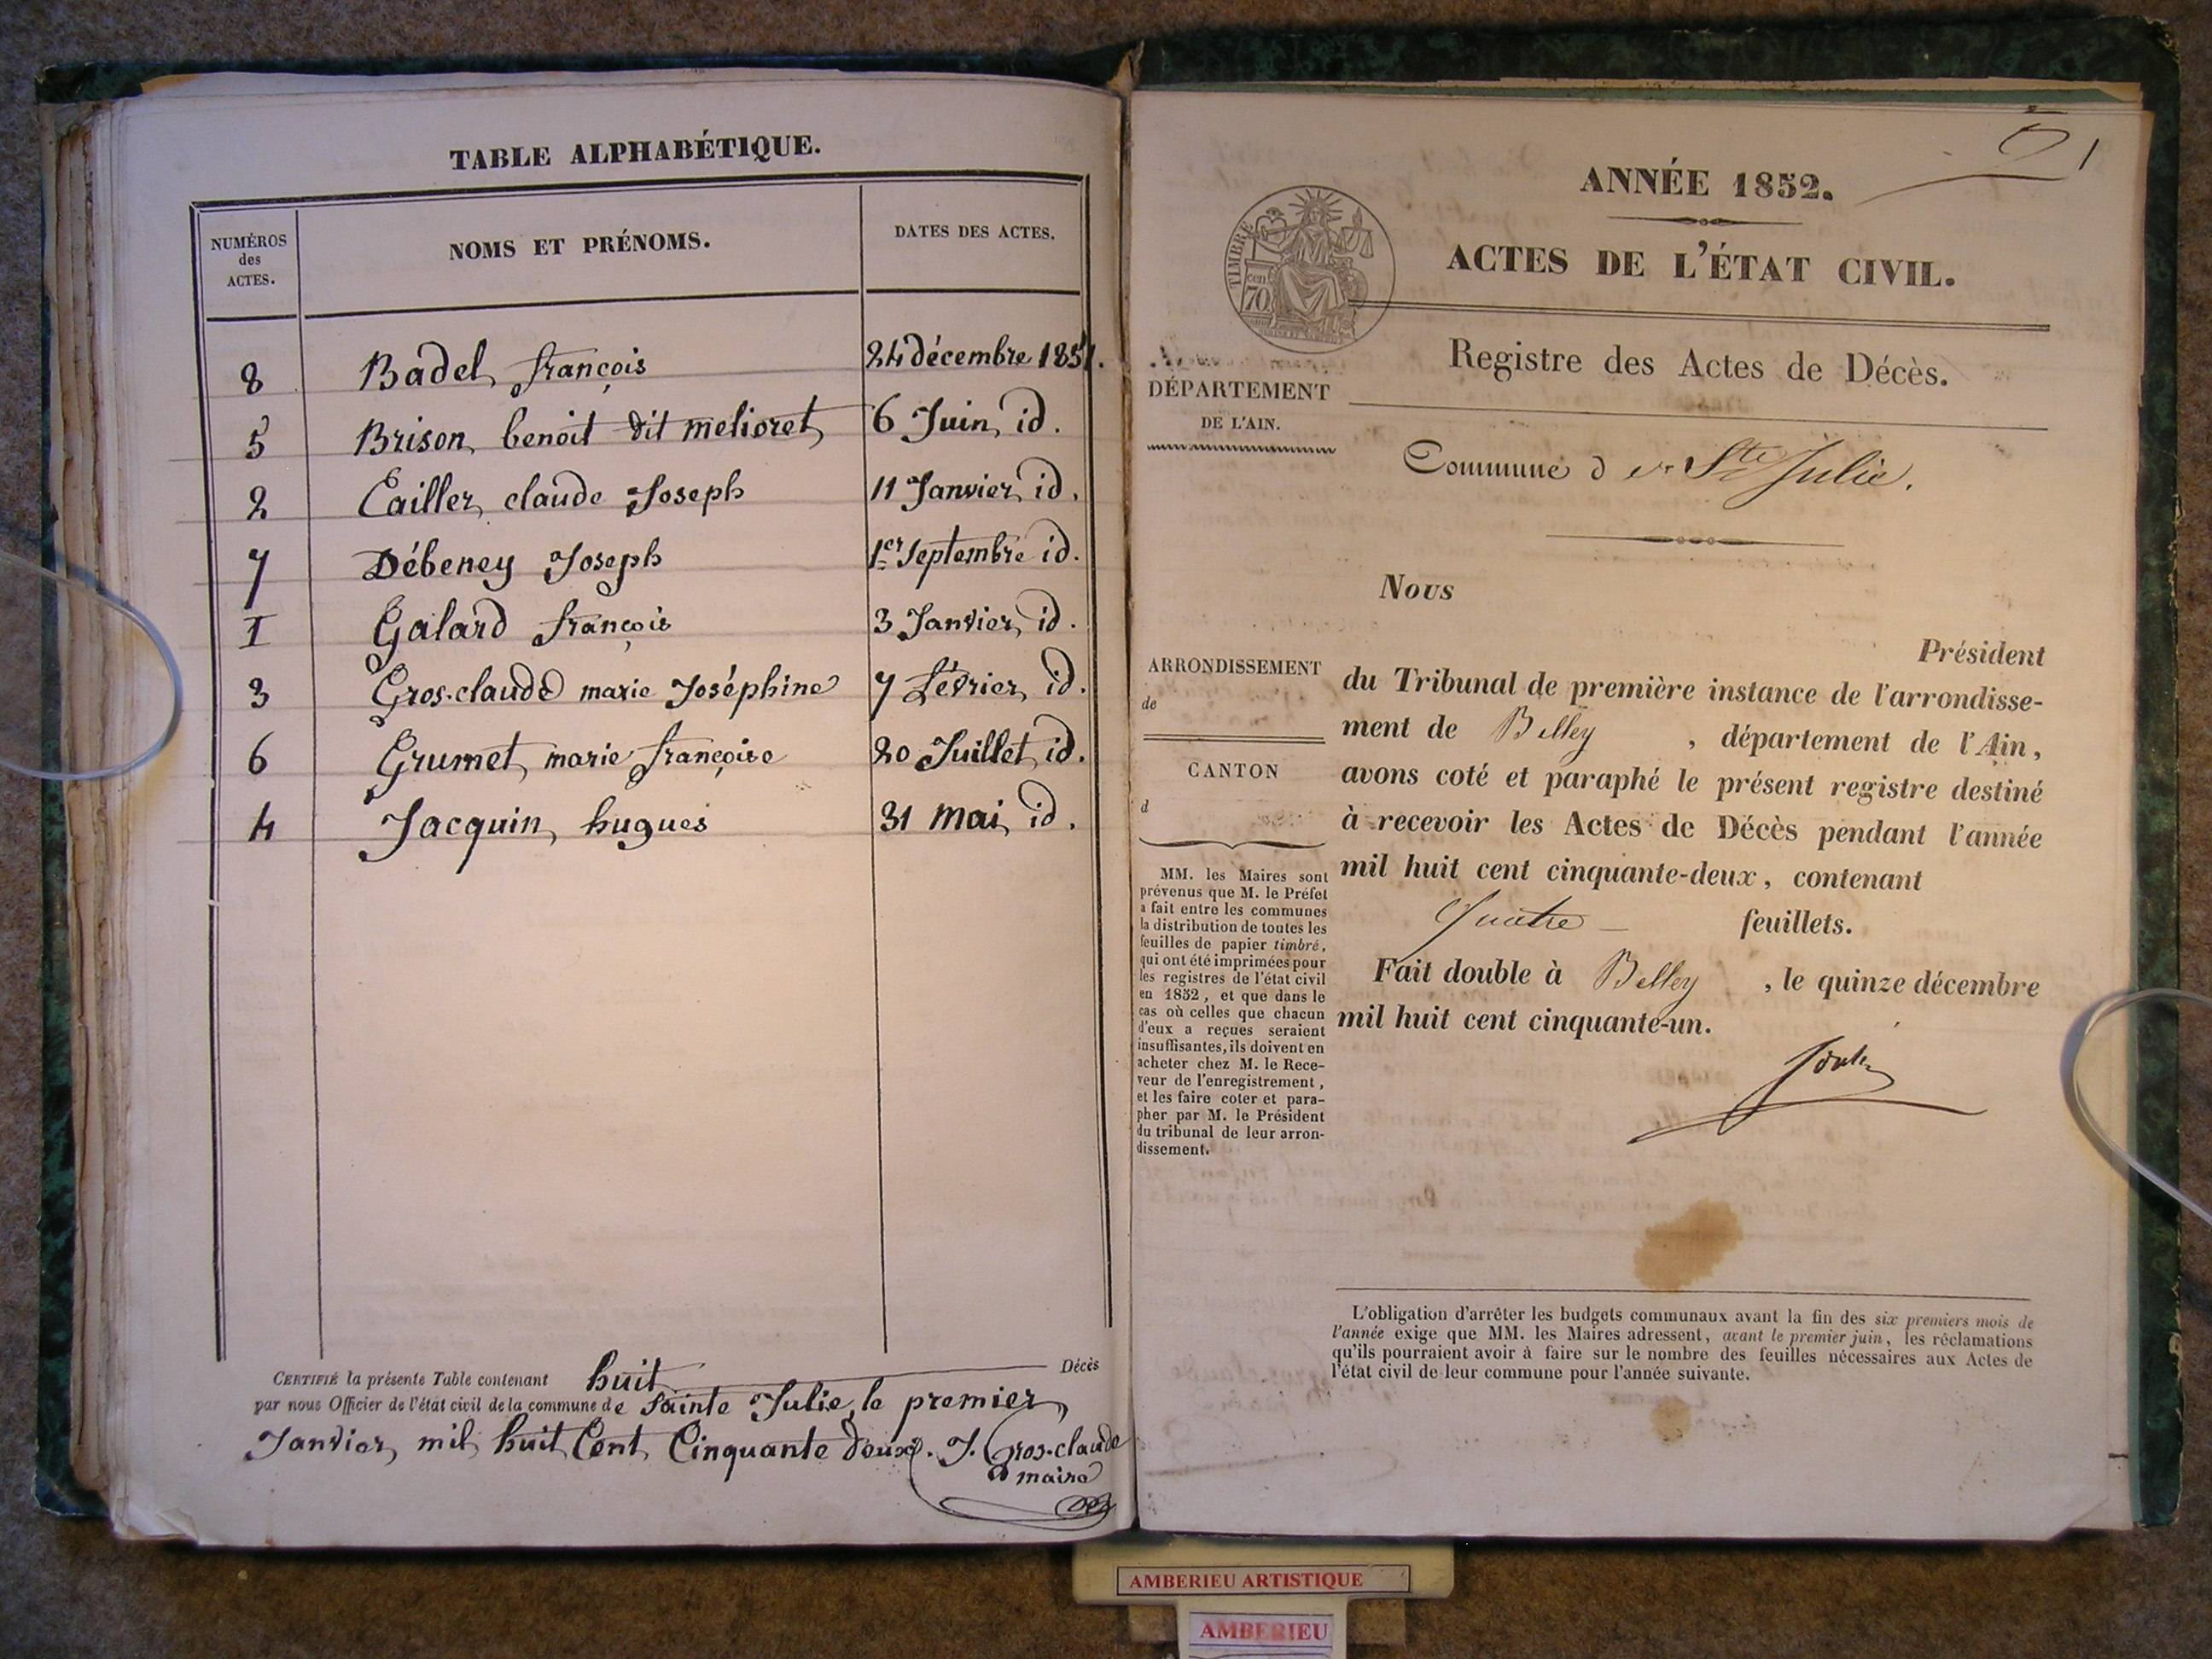 TABLE ALPHABÉTIQUE.
NUMÉROS
des
ACTES.
NOMS ET PRÉNOMS.
DATES DES ACTES.
8 Badel, françois 24 décembre 1851.
5 Brison, benoit dit melioret, 6 Juin, id.
2 Cailler, claude Joseph 11 Janvier, id.
7 Débeney Joseph 1er Septembre id.
I Galard françois 3 Janvier, id.
3 Gros-claude marie Joséphine 7 février, id.
6 Grumet, marie françoise 20 Juillet, id.
4 Jacquin, hugues 31 mai, id.
CERTIFIÉ la présente Table contenant huit Décès
par nous Officier de l'état civil de la commune de Sainte Julie, le premier,
Janvier, mil huit Cent Cinquante deux. J. Gros-claude
maire
1
ANNÉE 1852.
ACTES DE L'ÉTAT CIVIL.
TIMBRE
70
Registre des Actes de Décès.
DÉPARTEMENT
DE L'AIN.
Commune de Ste Julie.
Nous
Président
du Tribunal de première instance de l'arrondisse-
ment de Belley, département de l'Ain,
avons coté et paraphé le présent registre destiné
à recevoir les Actes de Décès pendant l'année
mil huit cent cinquante-deux, contenant
Quatre feuillets.
Fait double à Belley, le quinze décembre
mil huit cent cinquante-un.
ARRONDISSEMENT
de
CANTON
d
MM. les Maires sont
prévenus que M. le Préfet
a fait entre les communes
la distribution de toutes les
feuilles de papier timbré,
qui ont été imprimées pour
les registres de l'état civil
en 1852, et que dans le
cas où celles que chacun
d'eux a reçues seraient
insuffisantes, ils doivent en
acheter chez M. le Rece-
veur de l'enregistrement,
et les faire coter et para-
pher par M. le Président
du tribunal de leur arron-
dissement.
L'obligation d'arrêter les budgets communaux avant la fin des six premiers mois de
l'année exige que MM. les Maires adressent, avant le premier juin, les réclamations
qu'ils pourraient avoir à faire sur le nombre des feuilles nécessaires aux Actes de
l'état civil de leur commune pour l'année suivante.
AMBERIEU ARTISTIQUE
AMBERIEU